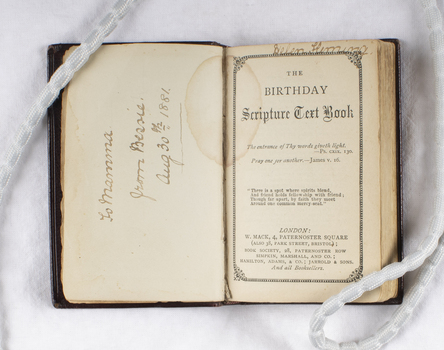 To Mamma
from Bessie.
Aug 30th 1881.
THE
BIRTHDAY
Scripture Text Book
The entrance of Thy words giveth light.
—Ps. cxix. 130.
Pray one for another.—James v. 16.
"There is a spot where spirits blend,
And friend holds fellowship with friend;
Though far apart, by faith they meet
Around one common mercy-seat."
LONDON:
W. MACK, 4, PATERNOSTER SQUARE
(ALSO 38, PARK STREET, BRISTOL);
BOOK SOCIETY, 28, PATERNOSTER ROW
SIMPKIN, MARSHALL, AND CO.;
HAMILTON, ADAMS, & CO.; JARROLD & SONS.
And all Booksellers.